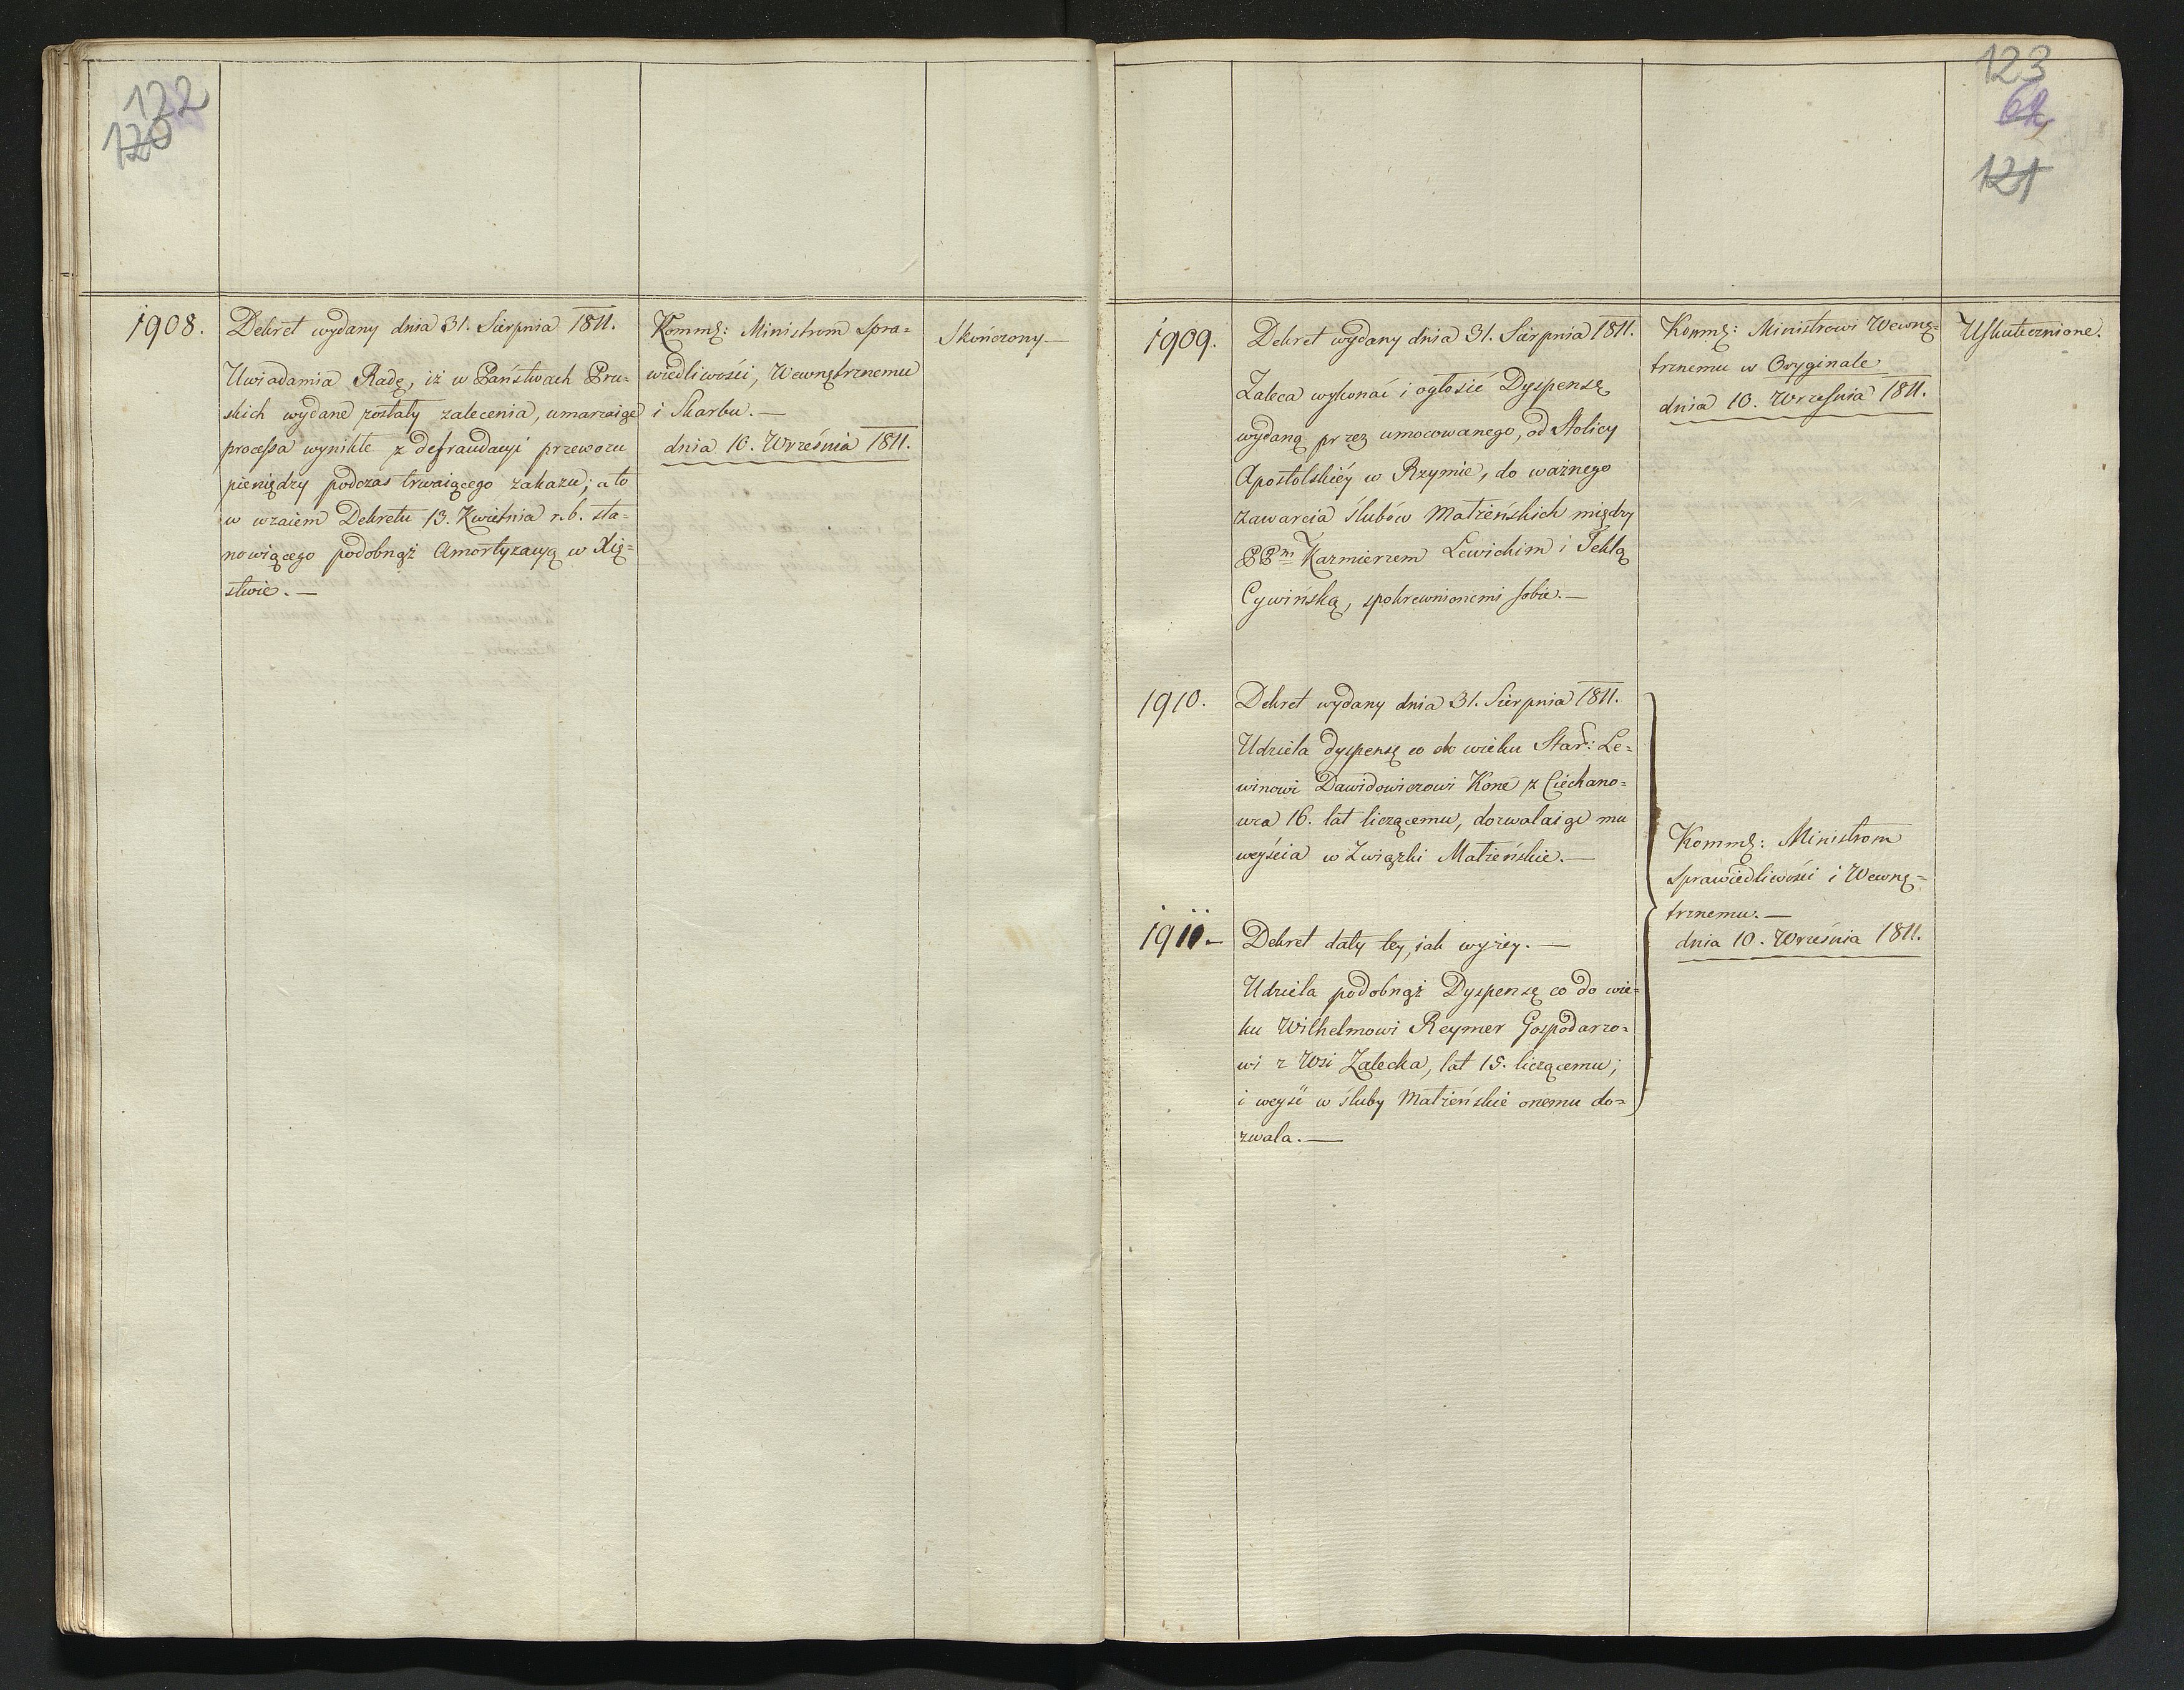 122
120
1908.
Dekret wydany dnia 31. Sierpnia 1811.
Uwiadamia Radę, iż w Państwach Pru=
skich wydane zostały zalecenia, umarzaiące
processa wynikłe z defraudacyi przewozu
pieniędzy podczas trwaiącego zakazu; a to
w wzaiem Dekretu 13. Kwietnia r.b. sta=
nowiącego podobnąż Amortyzacyą w Xię=
stwie.—
Kommę: Ministrom Spra=
wiedliwości, Wewnętrznemu
i Skarbu.—
dnia 10. Września 1811.
Skończony—
123
62
121
1909.
Dekret wydany dnia 31. Sierpnia 1811.
Zaleca wykonać i ogłosić Dyspensę
wydaną przez umocowanego, od Stolicy
Apostolskiéy w Rzymie, do ważnego
zawarcia ślubów Małżeńskich między
PPmi Kazmierzem Lewickim i Teklą
Cywińską, spokrewnionemi sobie.—
Kommę: Ministrowi Wewnę=
trznemu w Oryginale
dnia 10. Września 1811.
Uskutecznione.
1910.
Dekret wydany dnia 31. Sierpnia 1811.
Udziela dyspensę co do wieku Star: Le=
winowi Dawidowiczowi Kone z Ciechano=
wca 16. lat liczącemu, dozwalaiąc mu
weyścia w Związki Małżeńskie.—
1911.—
Dekret daty tey, iak wyżey.—
Udziela podobnąż Dyspensę co do wie=
ku Wilhelmowi Reymer Gospodarzo=
wi z Wsi Zalecka, lat 15. liczącemu;
i weyść w śluby Małżeńskie onemu do=
zwala.—
Kommę: Ministrom
Sprawiedliwości i Wewnę=
trznemu.—
dnia 10. Września 1811.